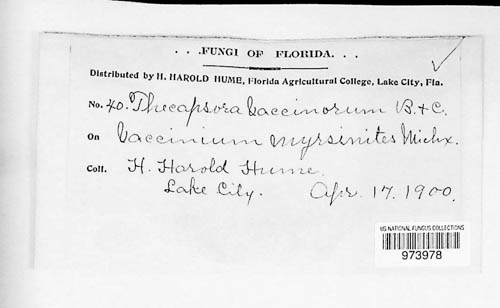 . . .FUNGI OF FLORIDA. . .
Distributed by H. HAROLD HUME, Florida Agricultural College, Lake City, Fla.
No. 40. Thecapsora Vaccinorum B. & C.
On Vaccinium myrsinites Michx.
Coll. H. Harold Hume.
Lake City. Apr. 17. 1900.
US NATIONAL FUNGUS COLLECTIONS
973978